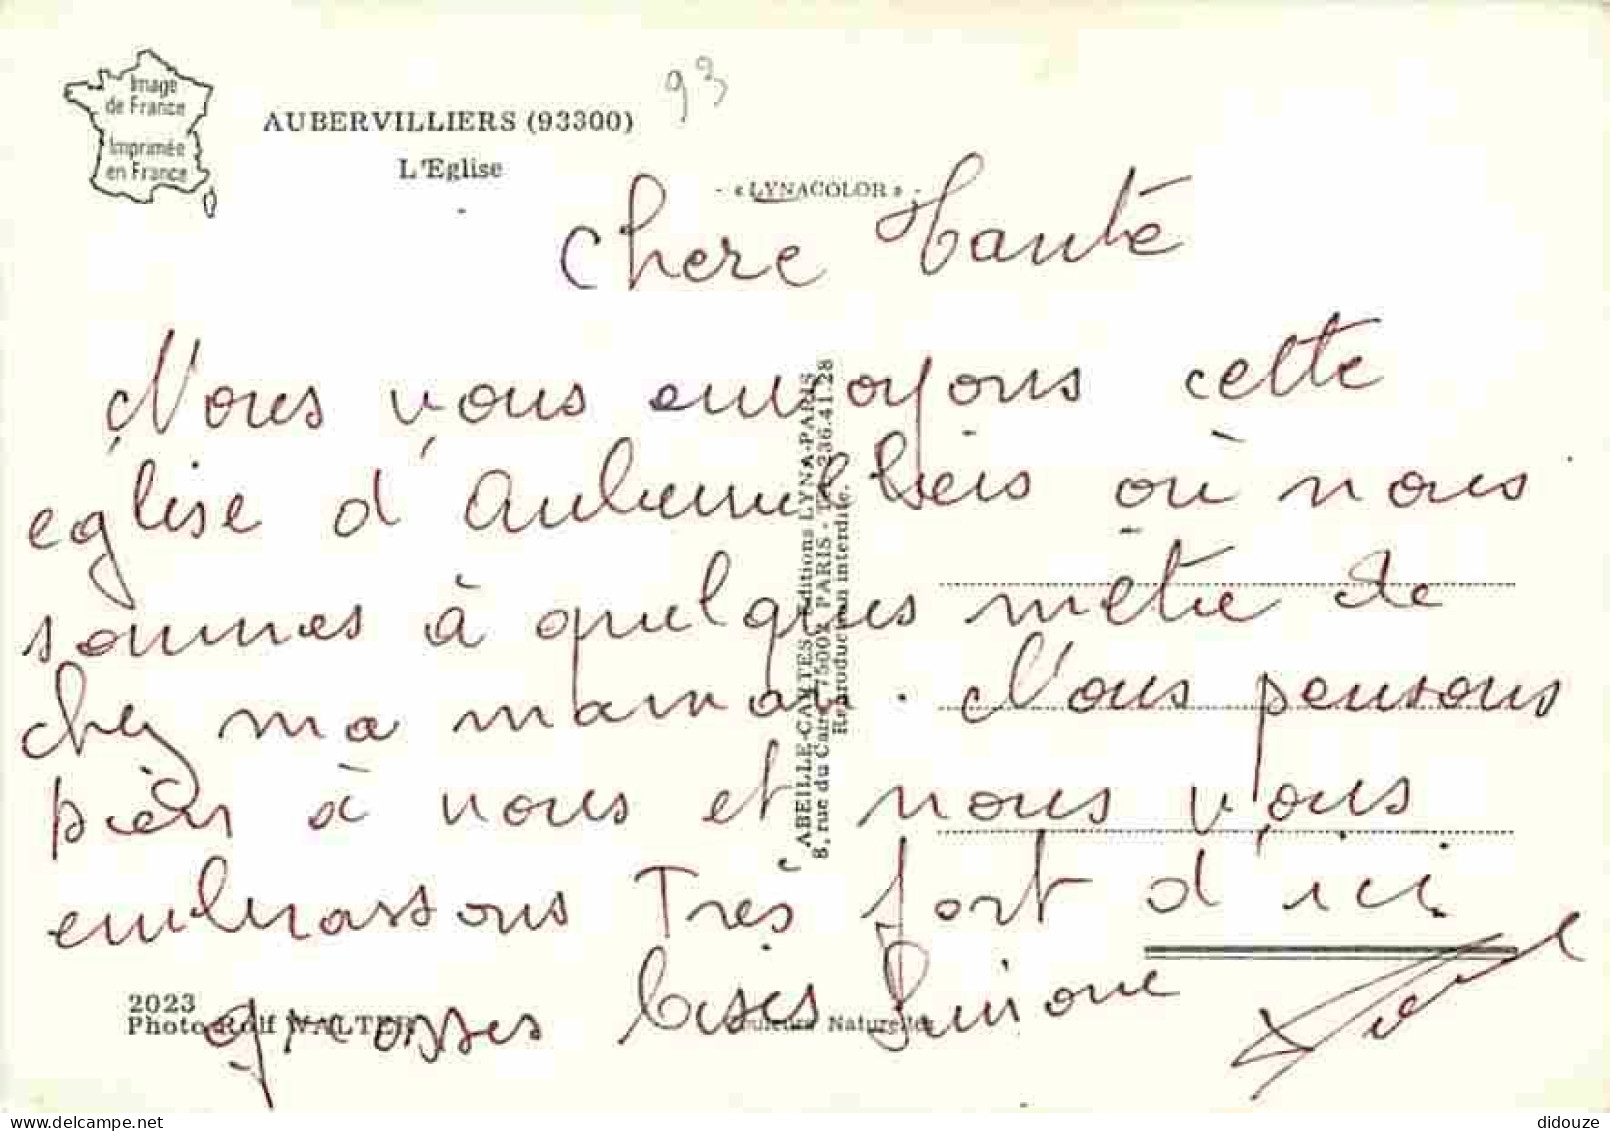 Image
de France
Imprimée
en France
AUBERVILLIERS (93300)
L'Eglise
93
- « LYNACOLOR » -
Chère Tante
Nous vous envoyons cette
eglise d'Aubervilliers où nous
sommes à quelques metre de
chez ma maman. Nous pensons
bien à vous et nous vous
embrassons Très fort d'ici
grosses bises Simone
ABEILLE-CARTES Editions LYNA-PARIS
8, rue du Caire 75002 PARIS - Tél. 236.41.28
Reproduction interdite.
2023
Photo Rolf WALTER
Couleurs Naturelles
didouze